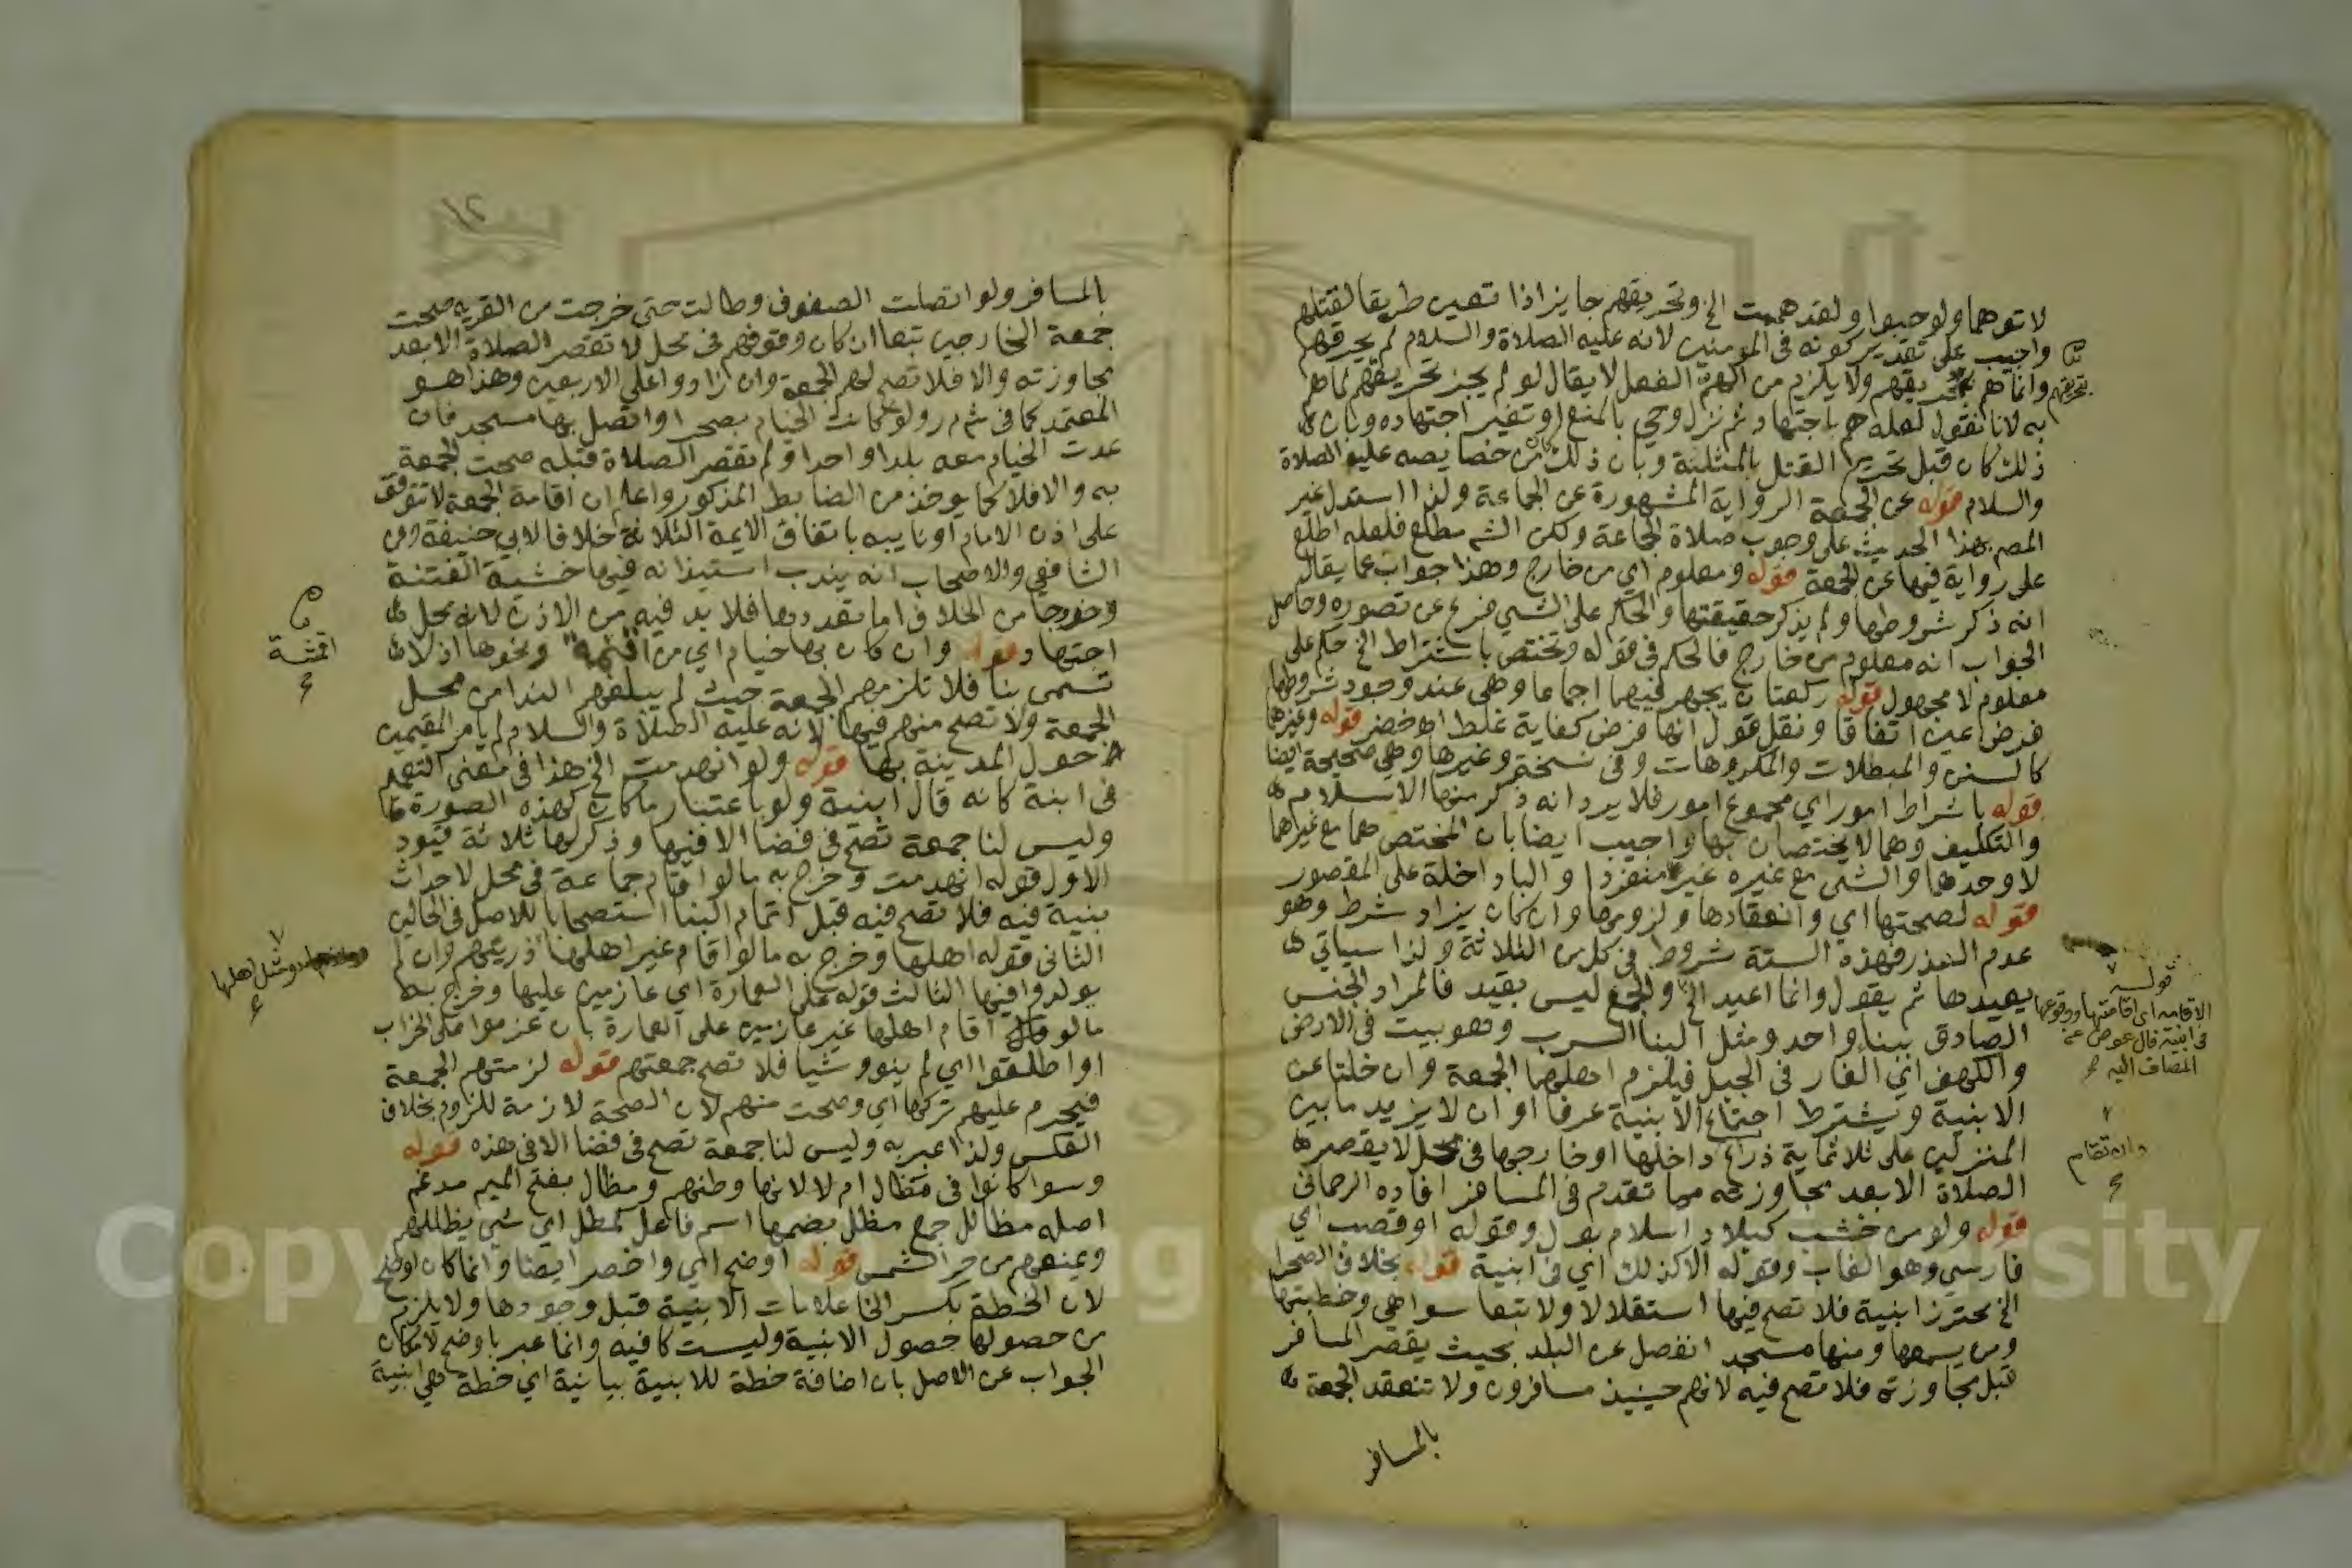 لاتوهما ولو حبوا ولقد هممت الخ وتحريقهم جايز اذا تعين طريقا لقتلهم
واجيب على تقدير كونه فى المومنين لانه عليه الصلاة والسلام لم يحرقهم
وانما هم بتحريقهم ولا يلزم من الهم الفعل لا يقال لو لم يجز تحريقهم لما هم
به لانا نقول لعله هم باجتهاد ثم نزل وحي بالمنع او تغير اجتهاده وبان
ذلك كان قبل تحريم القتل بالمثلة وبان ذلك من خصايصه عليه الصلاة
والسلام قوله عن الجمعة الرواية المشهورة عن الجماعة ولذا استدل غير
المصـ بهذا الحديث على وجوب صلاة الجماعة ولكن الشـ مطلع فلعله اطلع
على رواية فيها عن الجمعة قوله ومعلوم اي من خارج وهذا جواب عما يقال
انه ذكر شروطها ولم يذكر حقيقتها والحكم على الشي فرع عن تصوره وحاصل
الجواب انه معلوم من خارج فالحكم فى قوله وتختص باشتراط الخ حكم على
معلوم لا مجهول قوله ركعتان يجهر فيهما اجماعا وهى عند وجود شروطها
فرض عين اتفاقا ونقل قول انها فرض كفاية غلط اه خضر قوله وغيرها
كالسنن والمبطلات والمكروهات وفى نسخة وغيرها وهي صحيحة ايضا
قوله باشراط امور اي مجموع امور فلا يرد انه ذكر منها الاسلام
والتكليف وهما لا يختصان بها واجيب ايضا بان المختص هما مع غيرهما
لا وحدهما والشى مع غيره غيره منفردا والبا داخلة على المقصور
قوله لصحتها اي وانعقادها ولزومها وان كان يزاد شرط وهو
عدم العذر فهذه الستة شروط فى كل من الثلاثة ولذا سياتي
يعيدها ثم يقول وانما اعيد الخ والجمع ليس بقيد فالمراد الجنس
الصادق ببناء واحد ومثل البنا السرب وهو بيت فى الارض
والكهف اي الغار فى الجبل فيلزم اهلهما الجمعة وان خلتا عن
الابنية ويشترط اجتماع الابنية عرفا او ان لا يزيد ما بين
المنزلين على ثلاثماية ذراع داخلها او خارجها فى محل لا يقصر
الصلاة الا بعد مجاوزته مما تقدم فى المسافر افاده الرحمانى
قوله ولو من خشب كبلاد اسلام بول وقوله او قصب اي
فارسي وهو الغاب وقوله الا كذلك اي فى ابنية قوله بخلاف الصحرا
الخ محترز ابنية فلا تصح فيها استقلالا ولا تبعا سوا هي وخطبتها
ومن يسمعها ومنها مسجد انفصل عن البلد بحيث يقصر المسافر
قبل مجاوزته فلا تصح فيه لانهم حينيذ مسافرون ولا تنعقد الجمعة
بالمسافر
بتحريقهم
قولـه
الاقامة اي اقامتها ووقوعها
فى ابنية فال عوض عن
المضاف اليه
بالمسافر ولو اتصلت الصفوف وطالت حتى خرجت من القرية صحت
جمعة الخارجين تبعا ان كان وقوفهم فى محل لا تقصر الصلاة الا بعد
مجاوزته والا فلا تصح لهم الجمعة وان زادوا على الاربعين وهذا هو
المعتمد كما فى شـ مـ ر ولو كانت الخيام بصحرا واتصل بها مسجد فان
عدت الخيام معه بلدا واحدا ولم تقصر الصلاة قبله صحت الجمعة
به والا فلا كما يوخذ من الضابط المذكور واعلم ان اقامة الجمعة لا تتوقف
على اذن الامام او نايبه باتفاق الايمة الثلاثة خلافا لابي حنيفة وعن
الشافعي والاصحاب انه يندب استيذانه فيها خشية الفتنة
وخروجا من الخلاف اما تعددها فلا بد فيه من الاذن لانه محل
اجتهاد قوله وان كان بها خيام اي من اقمشة ونحوها اذ لا
تسمى بنا فلا تلزمهم الجمعة حيث لم يبلغهم الندا من محل
الجمعة ولا تصح منهم فيها لانه عليه الصلاة والسلام لم يامر المقيمين
حول المدينة بها قوله ولو انهدمت الخ هذا فى معنى التعميم
فى ابنية كانه قال ابنية ولو باعتبار ما كان كهذه الصورة
وليس لنا جمعة تصح فى فضا الا فيها وذكر لها ثلاثة قيود
الاول قوله انهدمت وخرج به ما لو اقام جماعة فى محل لاحداث
بنية فيه فلا تصح فيه قبل اتمام البنا استصحابا للاصل فى الحالين
الثانى قوله اهلها وخرج به ما لو اقام غير اهلها ذريتهم وان لم
يولدوا فيها الثالث قوله على العمارة اي عازمين عليها وخرج به
ما لو اقام اهلها غير عازمين على العمارة بان عزموا على الخراب
او اطلقوا اي لم ينووا شيا فلا تصح جمعتهم قوله لزمتهم الجمعة
فيحرم عليهم تركها اي وصحت منهم لان الصحة لازمة للزوم بخلاف
العكس ولذا عبر به وليس لنا جمعة تصح فى فضا الا فى هذه قوله
وسوا كانوا فى مظال ام لا لانها وطنهم ومظال بفتح الميم مدغم
اصله مظالل جمع مظلل بضمها اسم فاعل كمطل اي شي يظللهم
ويمنعهم من حر الشمس قوله اوضح اي واخصر ايضا وانما كان اوضح
لان الخطة بكسر الخا علامات الابنية قبل وجودها ولا يلزم
من حصولها حصول الابنية وليست كافيه وانما عبر باوضح لامكان
الجواب عن الاصل بان اضافة خطة للابنية بيانية اي خطة هي ابنية
اقمشة
ومثل اهلها
Copyright © King Saud University